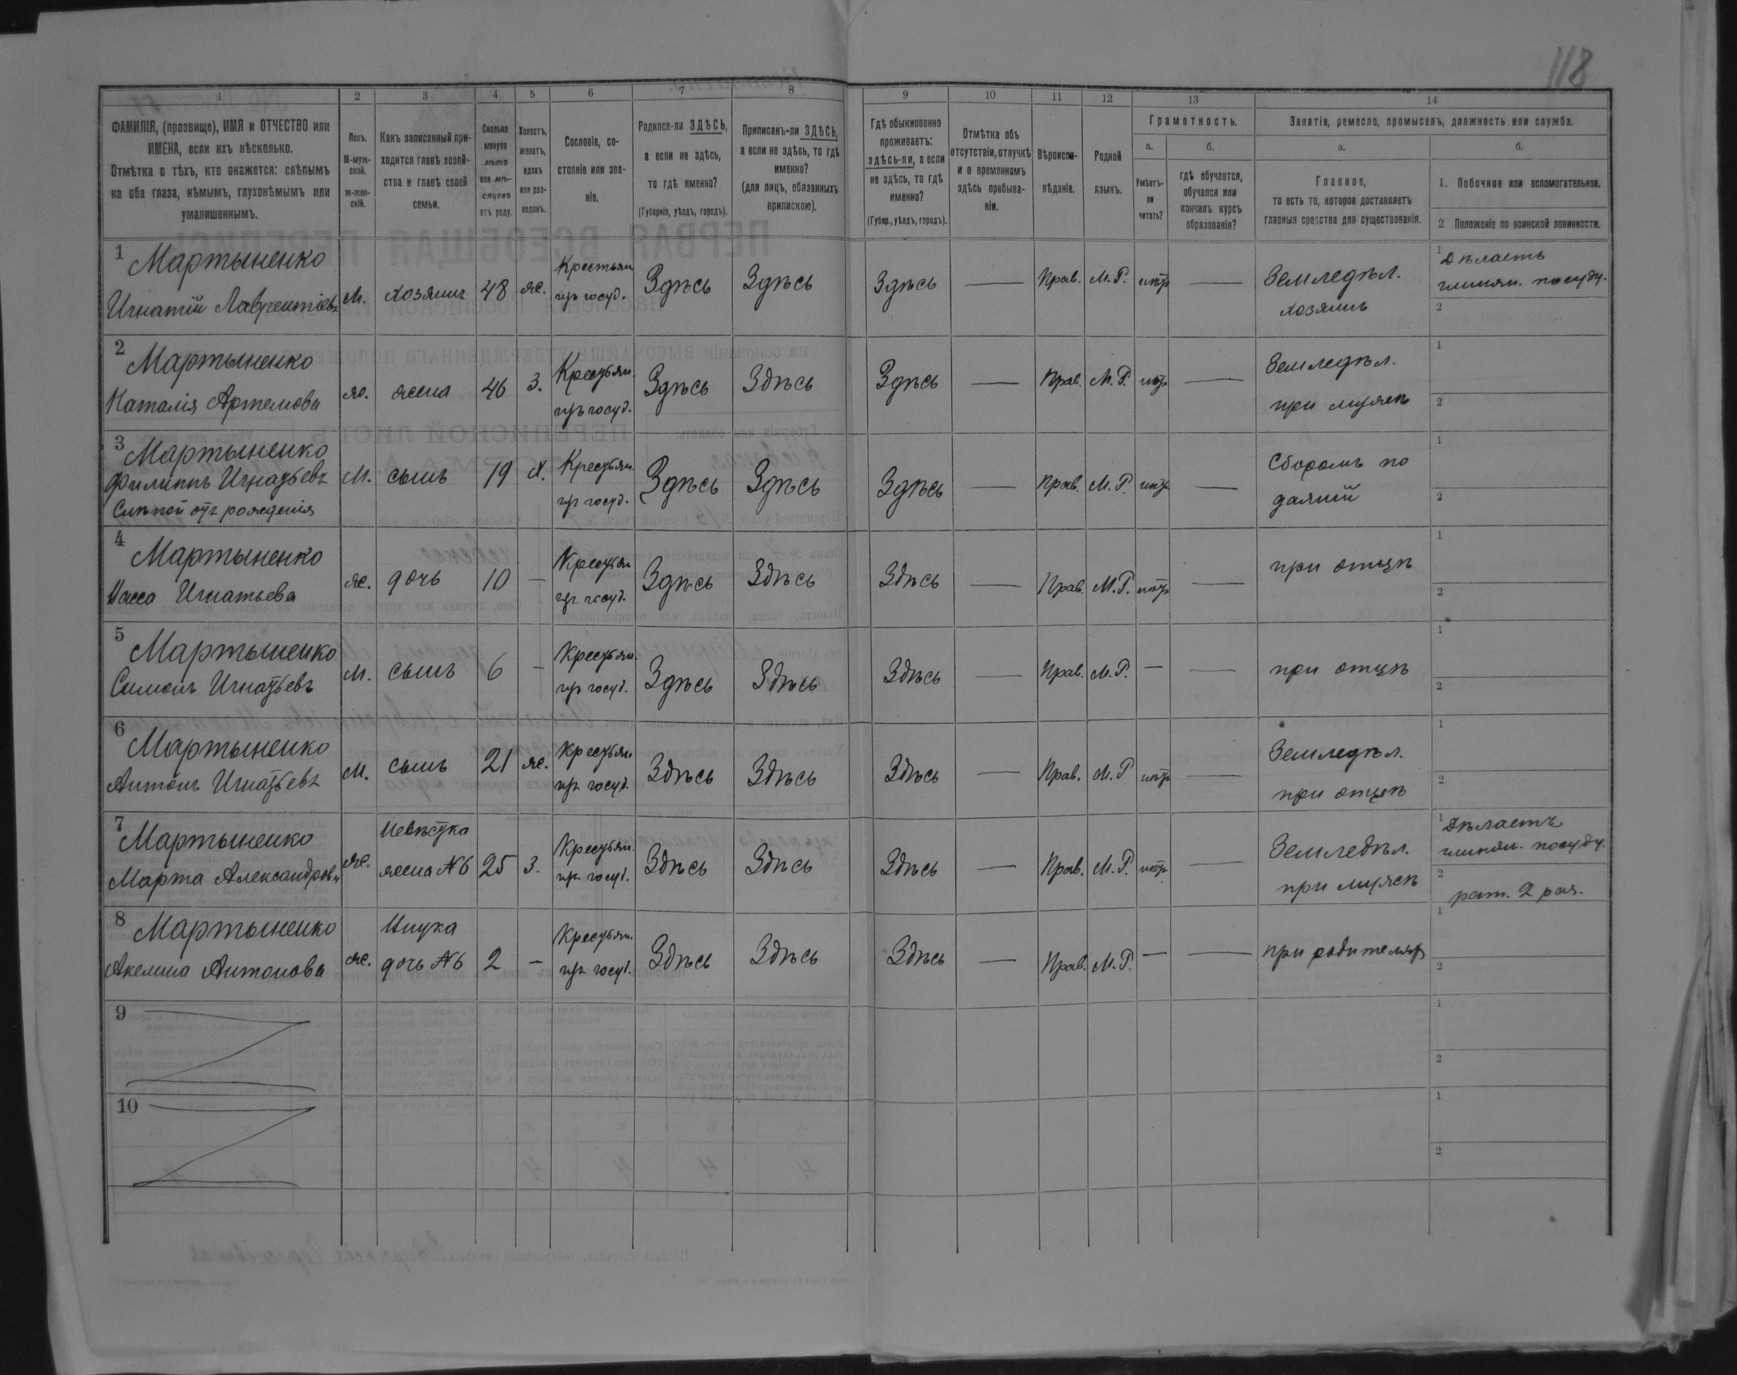 118
1 2 3 4 5 6 7 8 9 10 11 12 13 14
ФАМИЛІЯ, (прозвище), ИМЯ и ОТЧЕСТВО или ИМЕНА, если ихъ нѣсколько.
Отмѣтка о тѣхъ, кто окажется: слѣпымъ на оба глаза, нѣмымъ, глухонѣмымъ или умалишеннымъ.
Полъ. М-мужской. ж-женскій.
Какъ записанный приходится главѣ хозяйства и главѣ своей семьи.
Сколько минуло лѣтъ или мѣсяцевъ отъ роду.
Холостъ, женатъ, вдовъ или разведенъ.
Сословіе, состояніе или званіе.
Родился-ли ЗДѢСЬ, а если не здѣсь, то гдѣ именно?
(Губернія, уѣздъ, городъ).
Приписанъ-ли ЗДѢСЬ, а если не здѣсь, то гдѣ именно?
(для лицъ, обязанныхъ припискою).
Гдѣ обыкновенно проживаетъ: здѣсь-ли, а если не здѣсь, то гдѣ именно?
(Губер., уѣздъ, городъ).
Отмѣтка объ отсутствіи, отлучкѣ и о временномъ здѣсь пребываніи.
Вѣроисповѣданіе.
Родной языкъ.
Грамотность.
а. Умѣетъ-ли читать?
б. гдѣ обучается, обучался или кончилъ курсъ образованія?
Занятіе, ремесло, промыселъ, должность или служба.
а. Главное, то есть то, которое доставляетъ главныя средства для существованія.
б.
1. Побочное или вспомогательное.
2 Положеніе по воинской повинности.
1 Мартыненко
Игнатій Лаврентіевъ М. хозяинъ 48 же. Крестьян. изъ госуд. Здѣсь Здѣсь Здѣсь — Прав. М.Р. нѣтъ — Земледѣл. хозяинъ
1 Дѣлаетъ глинян. посуду.
2
2 Мартыненко
Наталія Артемова же. жена 46 З. Крестьян. изъ госуд. Здѣсь Здѣсь Здѣсь — Прав. М.Р. нѣтъ — Земледѣл. при мужѣ
1
2
3 Мартыненко
Филиппъ Игнатьевъ
Слѣпой отъ рожденія М. сынъ 19 Х. Крестьян. изъ госуд. Здѣсь Здѣсь Здѣсь — Прав. М.Р. нѣтъ — Сборомъ по даяній
1
2
4 Мартыненко
Васса Игнатьева же. дочь 10 — Крестьян изъ госуд. Здѣсь Здѣсь Здѣсь — Прав. М.Р. нѣтъ — при отцѣ
1
2
5 Мартыненко
Симонъ Игнатьевъ М. сынъ 6 — Крестьян. изъ госуд. Здѣсь Здѣсь Здѣсь — Прав. М.Р. — — при отцѣ
1
2
6 Мартыненко
Антонъ Игнатьевъ М. сынъ 21 же. Крестьян изъ госуд. Здѣсь Здѣсь Здѣсь — Прав. М.Р нѣтъ — Земледѣл. при отцѣ
1
2
7 Мартыненко
Марта Александров. же. Невѣстка жена №6 25 З. Крестьян. изъ госуд. Здѣсь Здѣсь Здѣсь — Прав. М.Р. нѣтъ — Земледѣл. при мужѣ
1 Дѣлаетъ глинян. посуду.
2 рат. 2 раз.
8 Мартыненко
Акелина Антонова же. Внука дочь №6 2 — Крестьян. изъ госуд. Здѣсь Здѣсь Здѣсь — Прав. М.Р. — — при родителяхъ
1
2
9
1
2
10
1
2